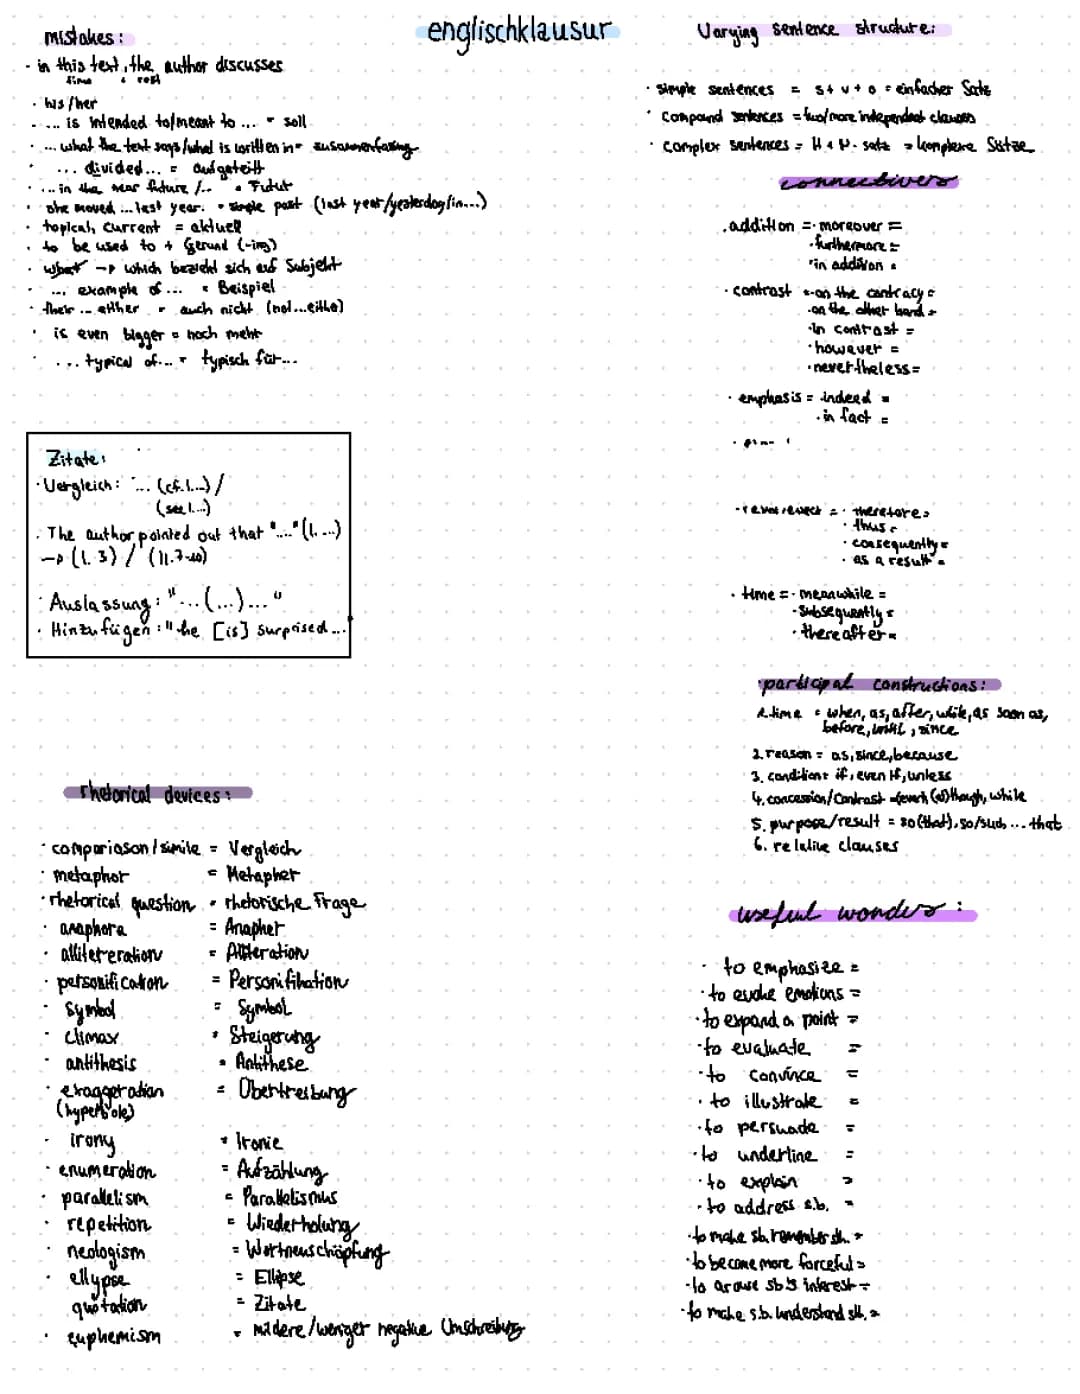 englischklausur
mistakes:
· in this text, the author discusses
time + rest
· his/her
· ... is intended to/meant to ... = soll
· ... what the text says/what is written in = zusammenfassung
· ... divided ... = aufgeteilt
· ... in the near future /.. = Futur
· she moved ... last year. = simple past (last year/yesterday/in...)
· topical, current = aktuell
· to be used to + Gerund (-ing)
· what -> which bezieht sich auf Subjekt
· ... example of ... = Beispiel
· ... either = auch nicht (not...either)
· is even bigger = noch mehr
· ... typical of ... = typisch für...
Zitate:
· Vergleich: "... (cf. l...) /
(see l...)
· The author pointed out that "..." (l. ...)
-> (l. 3) / (ll. 7-10)
· Auslassung: "...(...)..."
· Hinzufügen: "he [is] surprised...
rhetorical devices:
· compariason/simile = Vergleich
· metaphor = Metapher
· rhetorical question = rhetorische Frage
· anaphora = Anapher
· alliteration = Alliteration
· personification = Personifikation
· symbol = Symbol
· climax = Steigerung
· antithesis = Antithese
· exaggeration = Übertreibung
(hyperbole)
· irony = Ironie
· enumeration = Aufzählung
· parallelism = Parallelismus
· repetition = Wiederholung
· neologism = Wortneuschöpfung
· ellypse = Ellipse
quotation = Zitate
· euphemism = mildere/weniger negative Umschreibung
Varying sentence structure:
· simple sentences = s + v + o = einfacher Satz
· compound sentences = two/more independent clauses
· complex sentences = H + N-satz = komplexe Sätze
connectivers
· addition = · moreover =
· furthermore =
· in addition =
· contrast = · on the contracy =
· on the other hand =
· in contrast =
· however =
· nevertheless =
· emphasis = · indeed =
· in fact =
· therefore =
· thus =
· consequently =
· as a result =
· time = · meanwhile =
· subsequently =
· thereafter =
participal constructions:
1. time = when, as, after, while, as soon as,
before, until, since
2. reason = as, since, because
3. condition = if, even if, unless
4. concession/Contrast = (even) (al)though, while
5. purpose/result = so (that), so/such ... that
6. relative clauses
useful wonders:
· to emphasize =
· to evoke emotions =
· to expand a point =
· to evaluate =
· to convince =
· to illustrate =
· to persuade =
· to underline =
· to explain =
· to address s.b. =
· to make sb. remember sth. =
· to become more forceful =
· to arouse sb's interest =
· to make s.b. understand sth. =